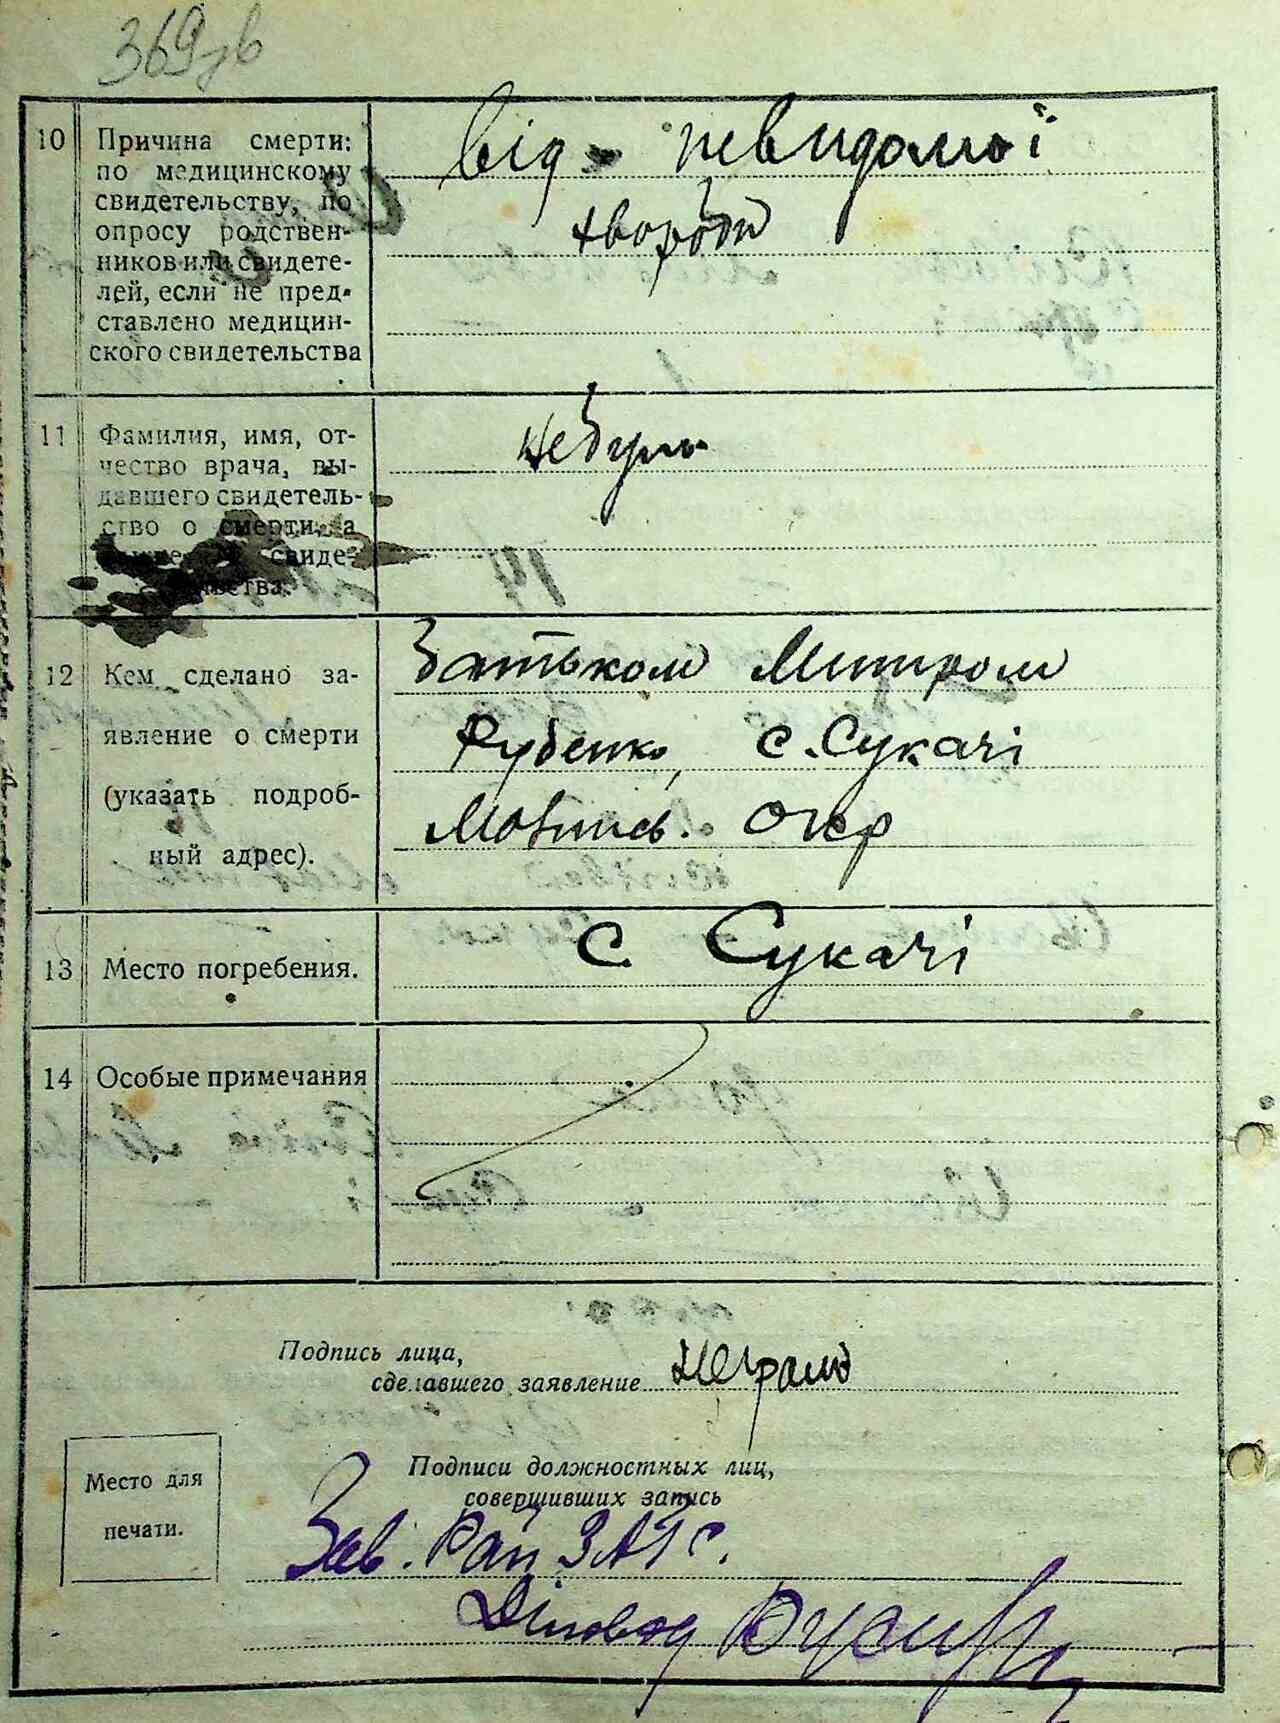 369зв
10 Причина смерти:
по медицинскому
свидетельству, по
опросу родствен-
ников или свидете-
лей, если не пред-
ставлено медицин-
ского свидетельства
від невидомої
хвороби
11 Фамилия, имя, от-
чество врача, вы-
давшего свидетель-
ство о смерти, а
свиде-
Небуло
12 Кем сделано за-
явление о смерти
(указать подроб-
ный адрес).
Батьком Митром
Рубенко, с. Сукачі
окр
13 Место погребения.
с Сукачі
14 Особые примечания
Подпись лица,
сделавшего заявление Неграмо
Подписи должностных лиц,
совершивших запись
Место для
печати.
Зав. Рай ЗАГС.
Діловод